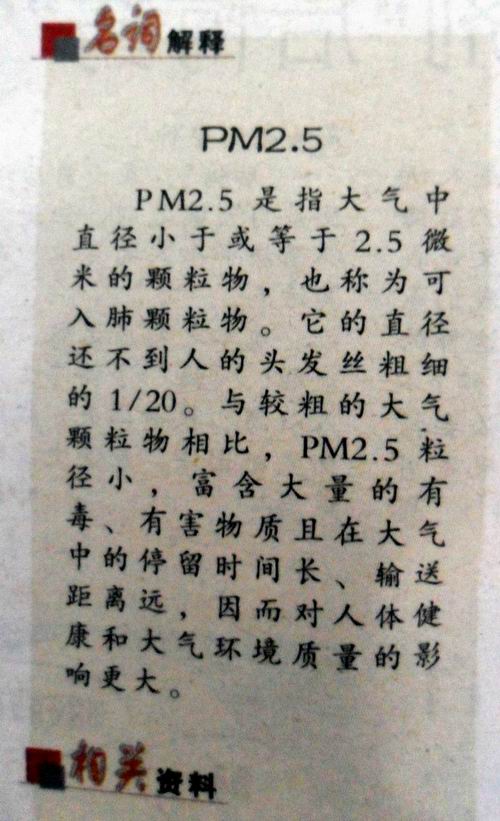 名词解释
PM2.5
PM2.5是指大气中
直径小于或等于2.5微
米的颗粒物，也称为可
入肺颗粒物。它的直径
还不到人的头发丝粗细
的1/20。与较粗的大气
颗粒物相比，PM2.5粒
径小，富含大量的有
毒、有害物质且在大气
中的停留时间长、输送
距离远，因而对人体健
康和大气环境质量的影
响更大。
相关资料